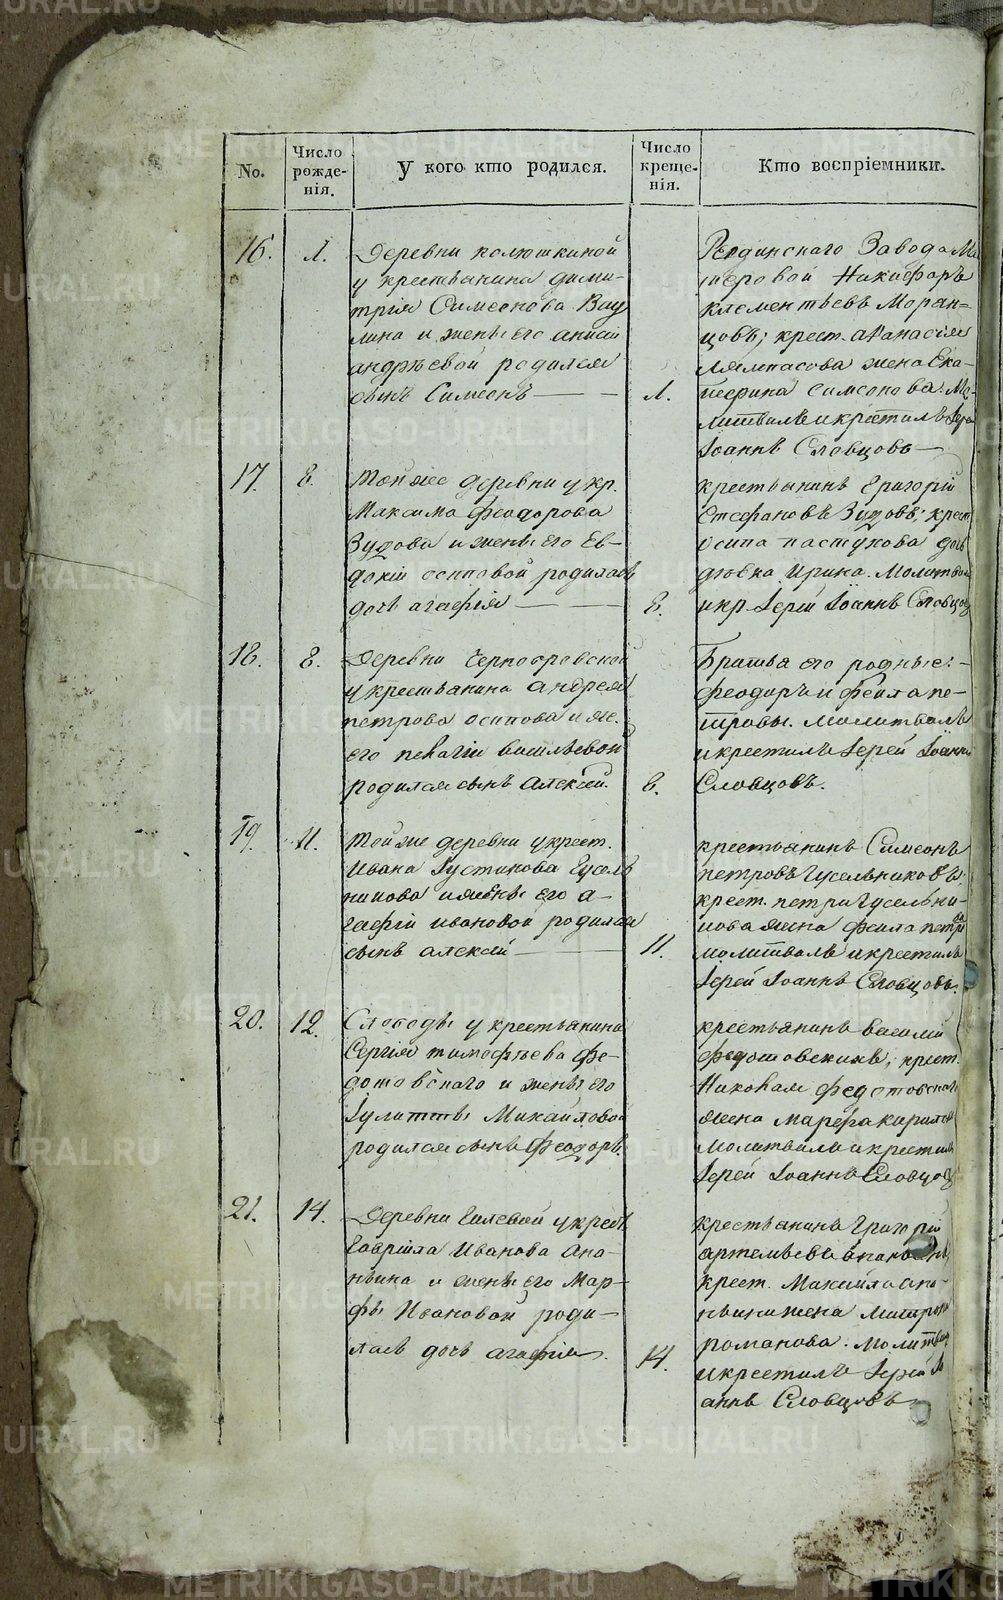 No.
Число рожде-нія.
У кого кто родился.
Число креще-нія.
Кто воспріемники.
16.
Л.
Деревни колюшкиной
у крестьянина дими-
трія Симеонова Вау
лина и жены его анисіи
андрѣевой родился
сынъ Симеонъ
Л.
Завода Ма
теровой Никифоръ
клементьевъ Моран=
цовъ; крест. аѳанасія
жена Ека-
терина симеонова. Мо-
литвилъ и крестилъ Іерей
Іоаннъ Словцовъ
17.
8.
Той же деревни у кр.
Максима феодорова
Зудова и жены его Ев-
докіи осиповой родилась
дочь агафія
8.
крестьянинъ григорій
Стефановъ Зудовъ; крест
осипа пастухова дочь
дѣвка Ирина. Молитвилъ
и кр. Іерей Іоаннъ Словцовъ
18.
8.
Деревни
у крестьянина андрея
петрова осипова и же.
его пелагіи васильевой
родился сынъ алексій.
8.
братья его родные:
феодоръ и фекла пе-
тровы. молитвилъ
и крестилъ Іерей Іоаннъ
Словцовъ.
19.
11.
Той же деревни у крест.
Ивана Іустинова Гусель
никова и жены его а-
гафіи ивановой родился
сынъ алексій
11.
крестьянинъ Симеонъ
петровъ Гусельниковъ,
крест. петра Гусельни-
кова жена фекла петро
молитвилъ и крестилъ
Іерей Іоаннъ Словцовъ.
20.
12.
Слободы у крестьянина
Сергія тимофѣева фе-
дотовскаго и жены его
Іулитты Михайловой
родился сынъ феодоръ.
крестьянинъ василій
федотовскихъ; крест.
Николая федотовскаго
жена марфа кирилова
молитвилъ и крестилъ
Іерей Іоаннъ Словцовъ
21.
14.
Деревни Гилевой у крест
Гавріила Иванова Ана-
ньина и жены его Мар-
фы Ивановой роди-
лась дочь агафія.
14.
крестьянинъ Григорій
артемьевъ ананьинъ,
крест. Михаила ана-
ньина жена
романова. молитвилъ
и крестилъ Іерей Іо
аннъ Словцовъ
METRIKI.GASO-URAL.RU